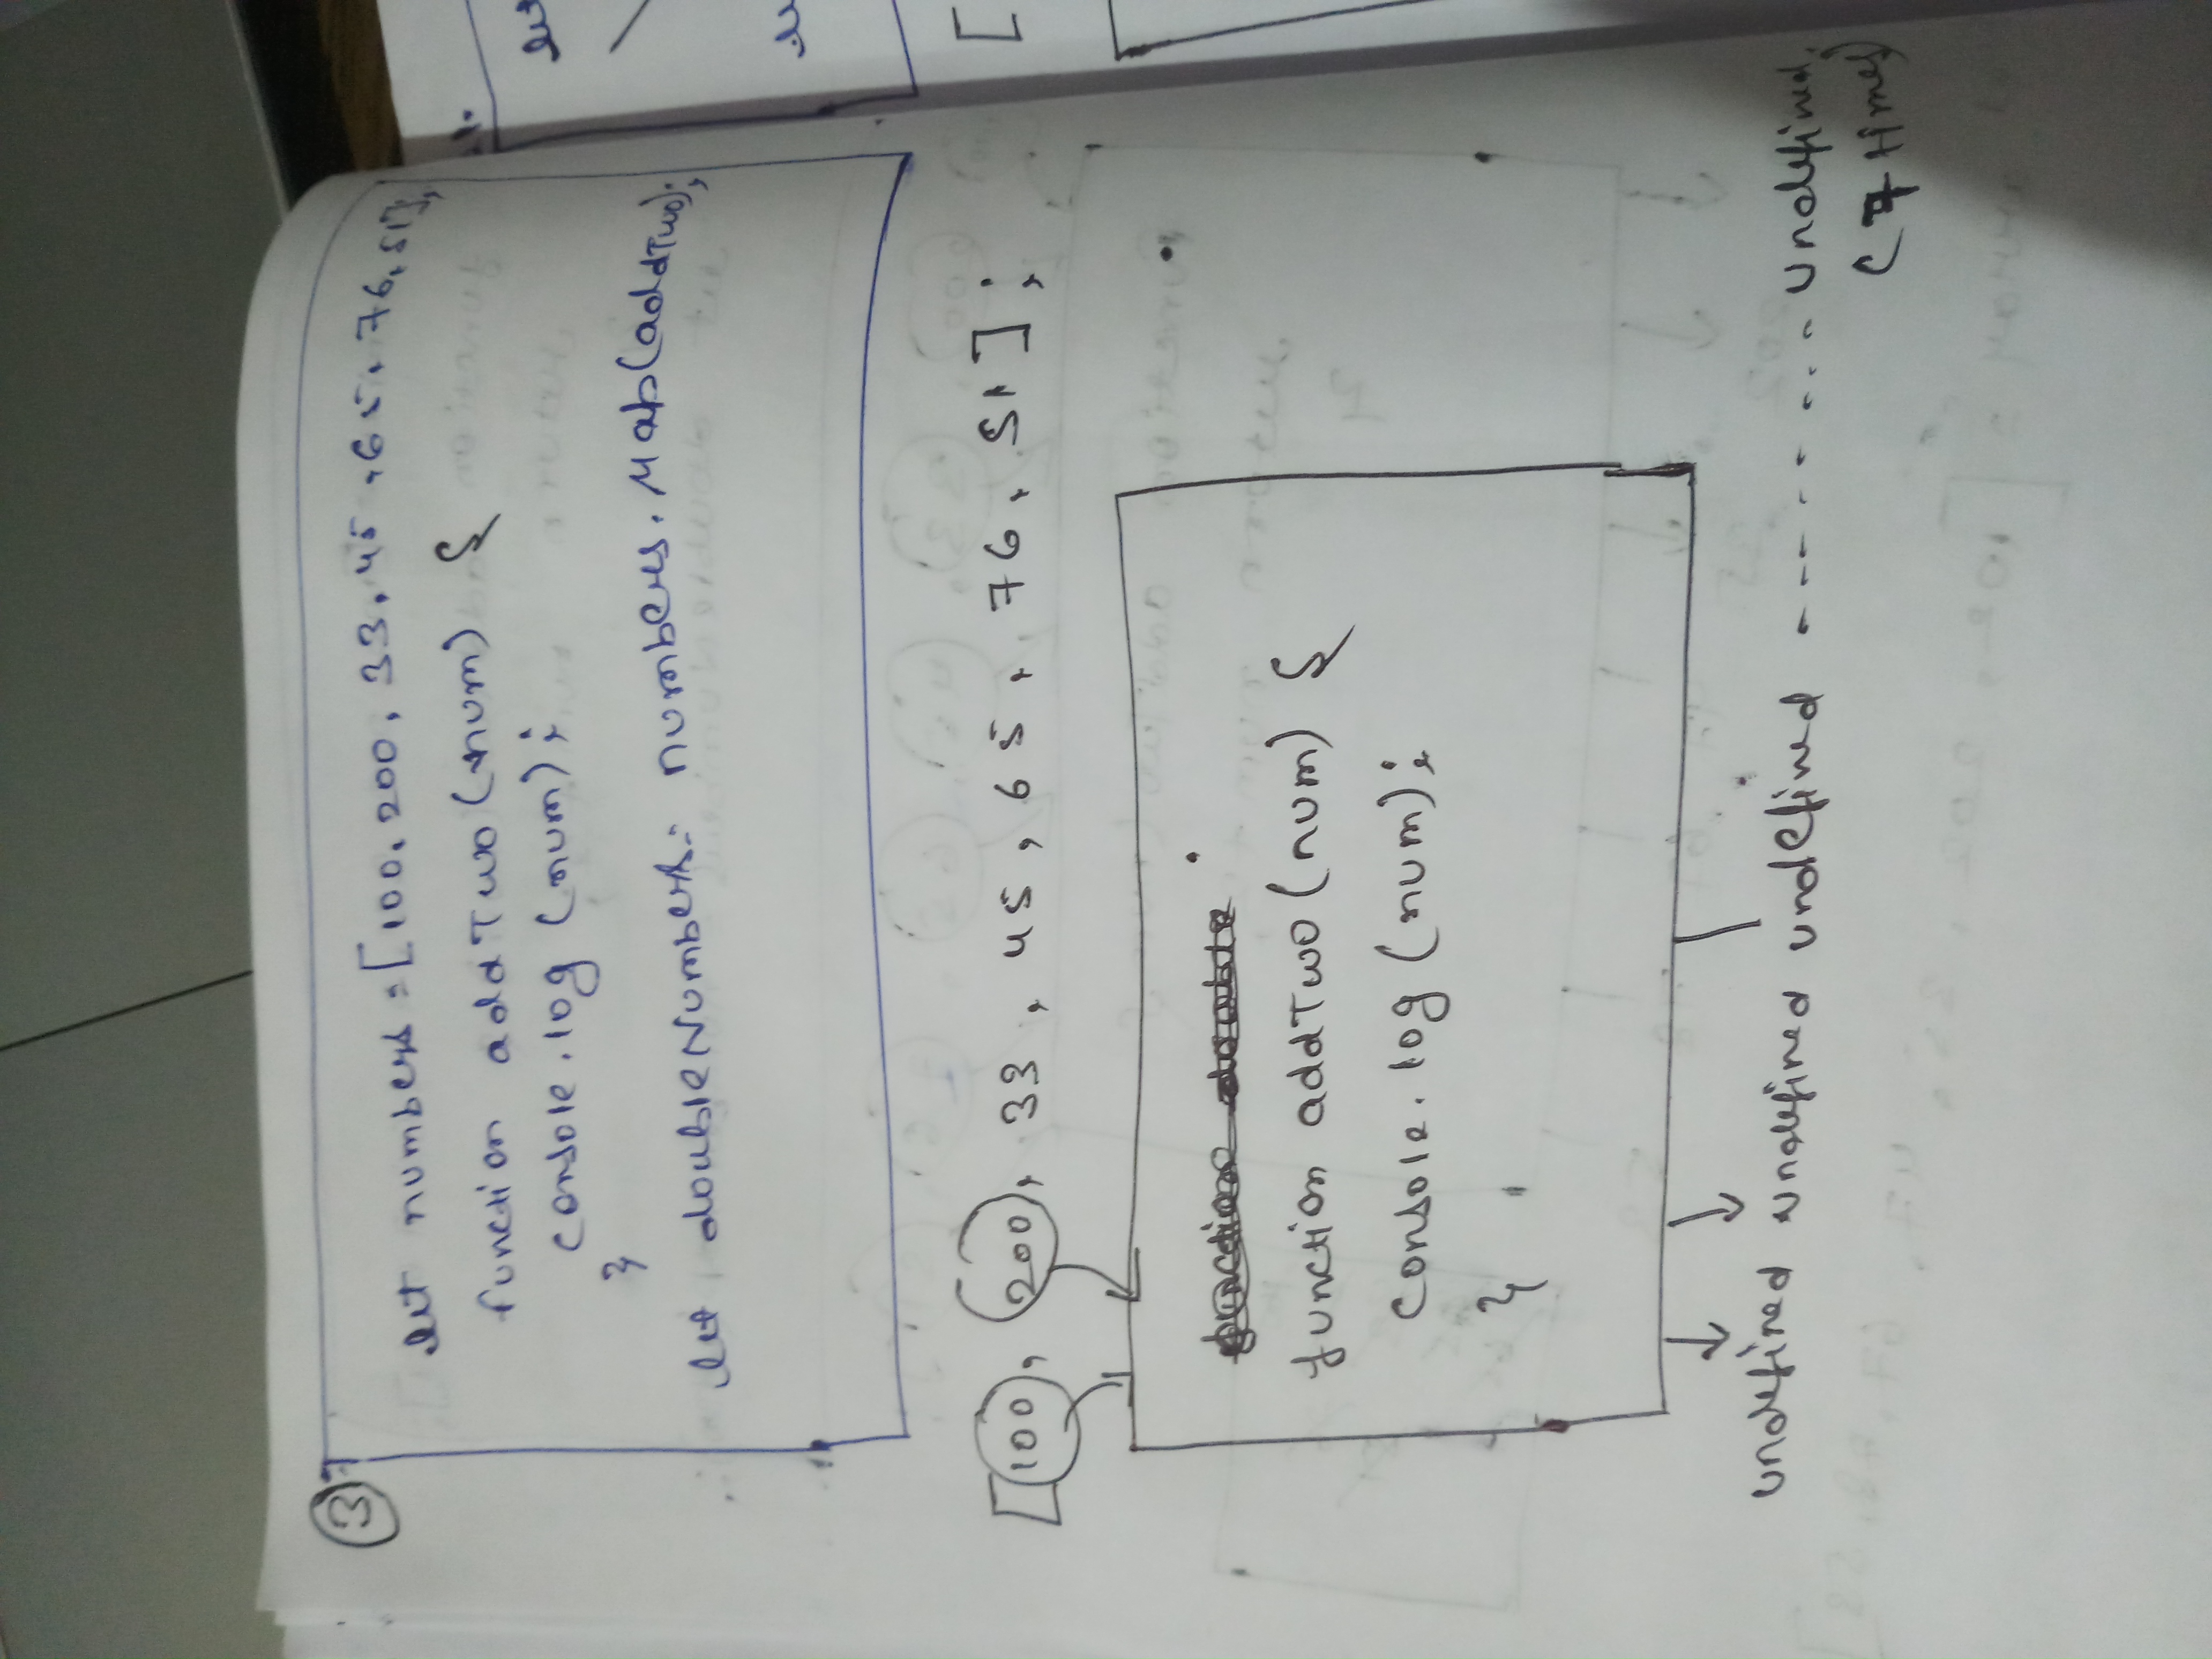 3
let numbers = [100, 200, 33, 45, 65, 76, 51];
function addTwo (num) {
console.log (num);
}
let doubleNumbers = numbers. Map(addTwo);
[100, 200, 33, 45, 65, 76, 51];
function addTwo (num) {
console.log (num);
}
undefined undefined undefined -------- undefined.
(7 times)
let
[